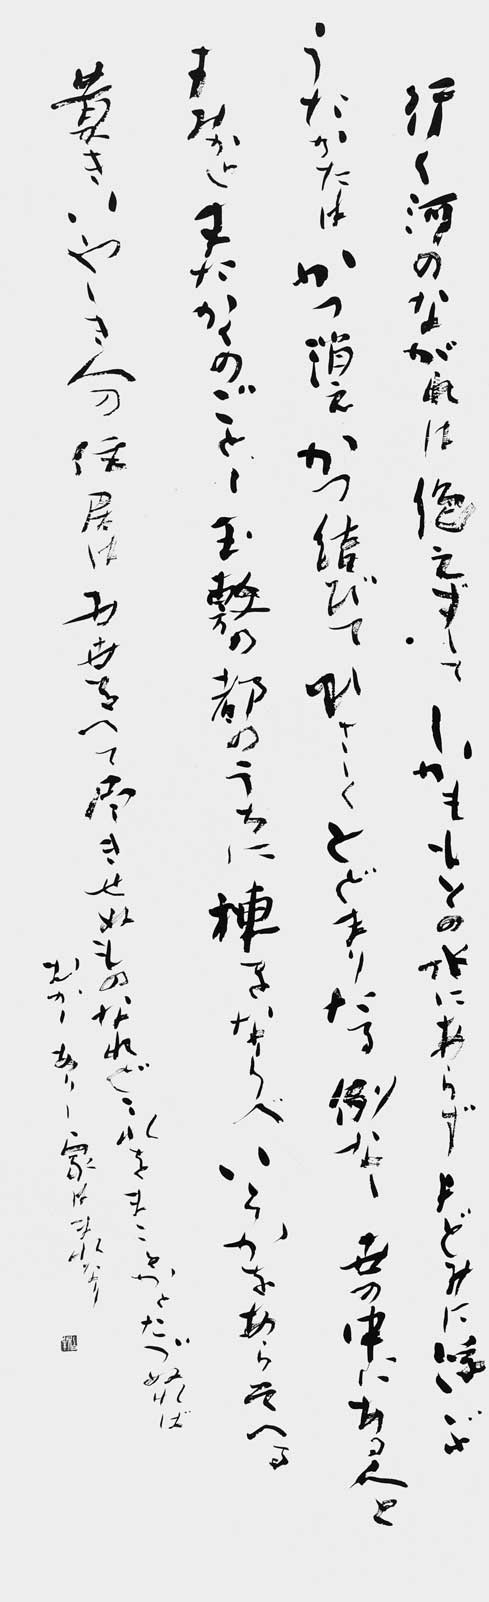 行く河のながれは絶えずしてしかももとの水にあらずよどみに浮ぶ
うたかたはかつ消えかつ結びてひさしくとどまりたる例なし世の中にある人と
すみかとまたかくのごとし玉敷の都のうちに棟をならべいらかをあらそへる
貴きいやしき人の住居はよ世をへて尽きせぬものなれどこれをまことかとたづぬれば
むかしありし家はまれなり